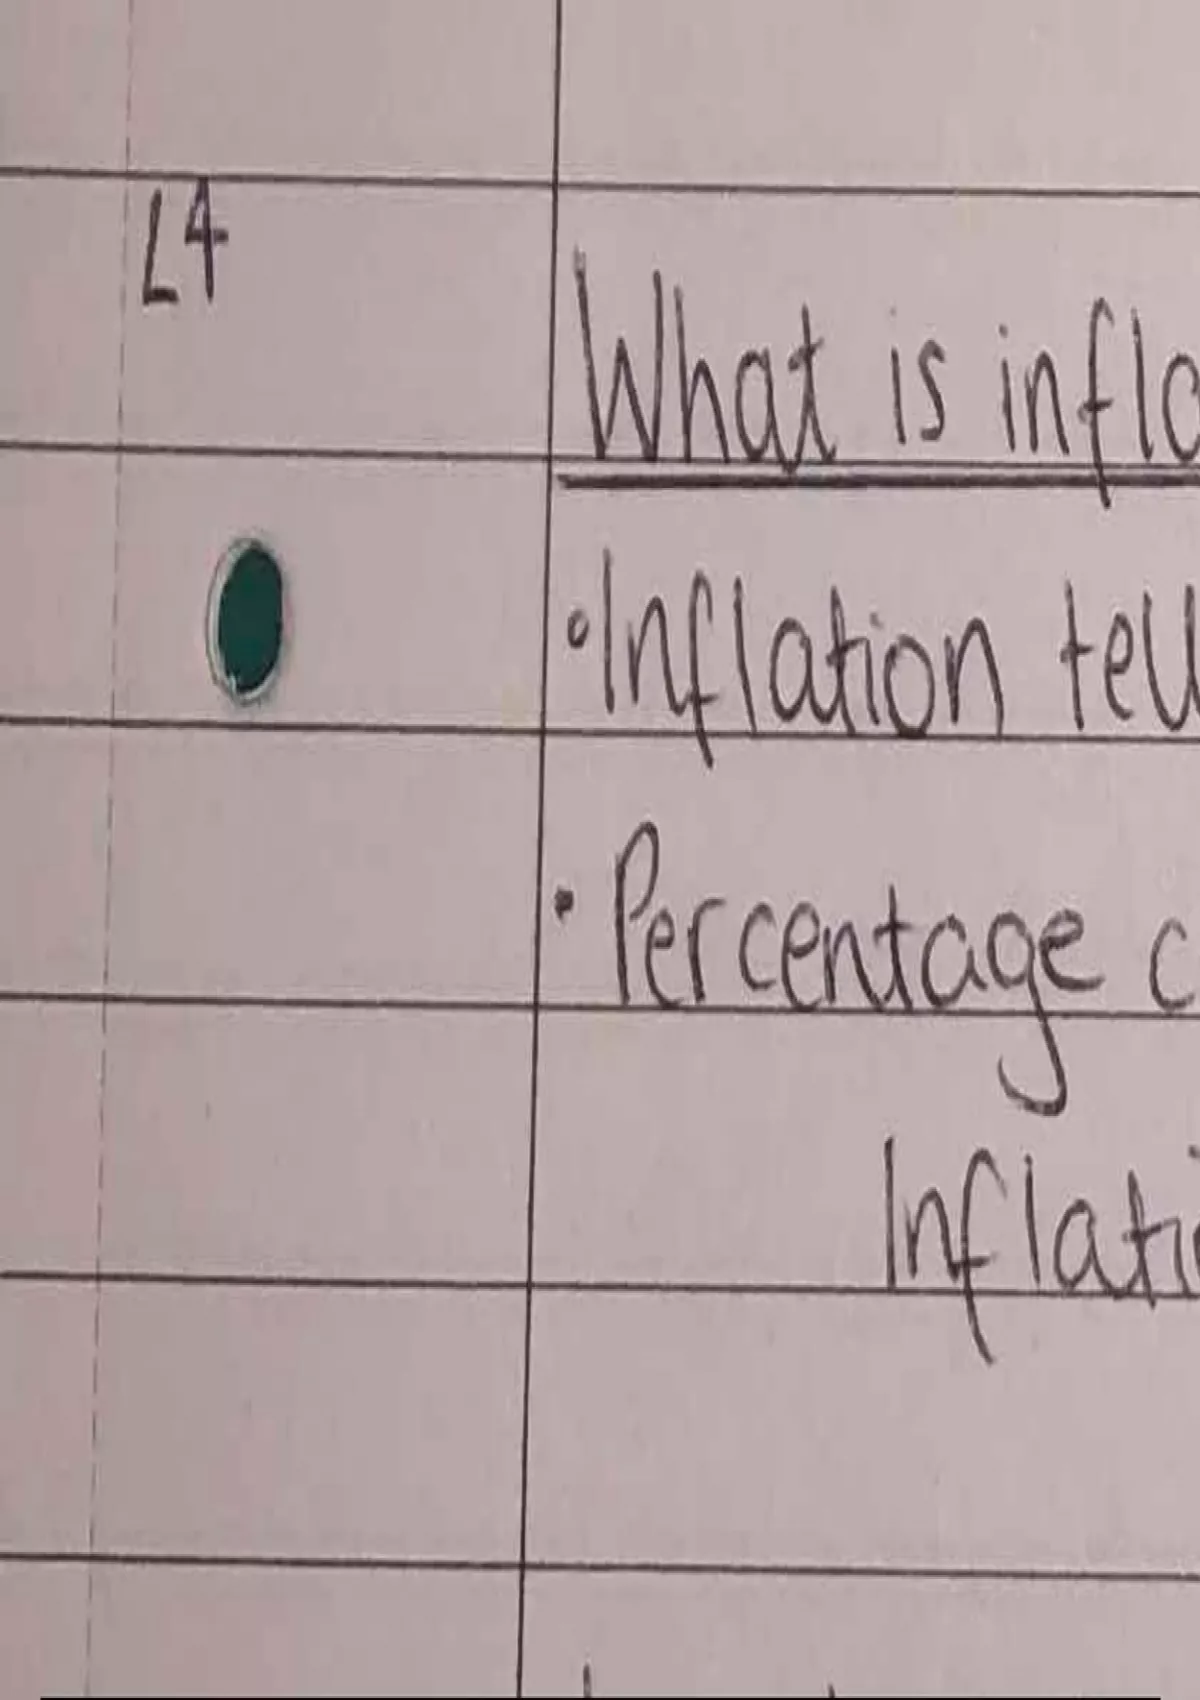 L4
What is infla
•Inflation tell
• Percentage c
Inflati